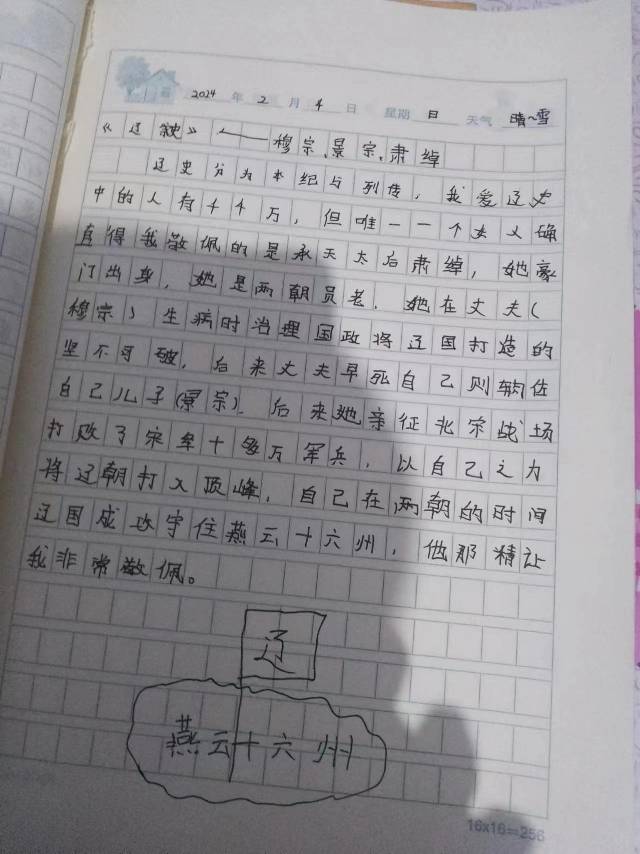 2024 年 2 月 4 日 星期 日 天气 晴~雪
《辽史》——穆宗、景宗、肃绰
辽史分为本纪与列传，我爱辽史
中的人有千千万，但唯一一个大义确
值得我敬佩的是承天太后肃绰，她豪
门出身，她是两朝员老．她在丈夫（
穆宗）生病时治理国政将辽国打造的
坚不可破，后来丈夫早死自己则辅佐
自己儿子（景宗）．后来她亲征北宋战场
打败了宋军十多万军兵，以自己之力
将辽朝打入顶峰，自己在两朝的时间
辽国成功守住燕云十六州，他那精让
我非常敬佩。
辽
燕云十六州
16x16=256